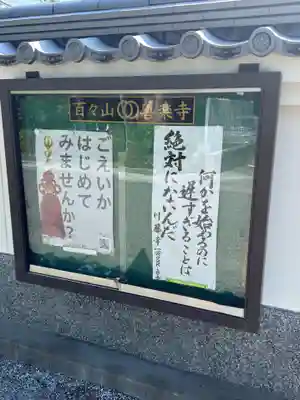 百々山 善楽寺
何かを始めるのに
遅すぎることは
絶対にないんだ
ごえいか
はじめて
みませんか？